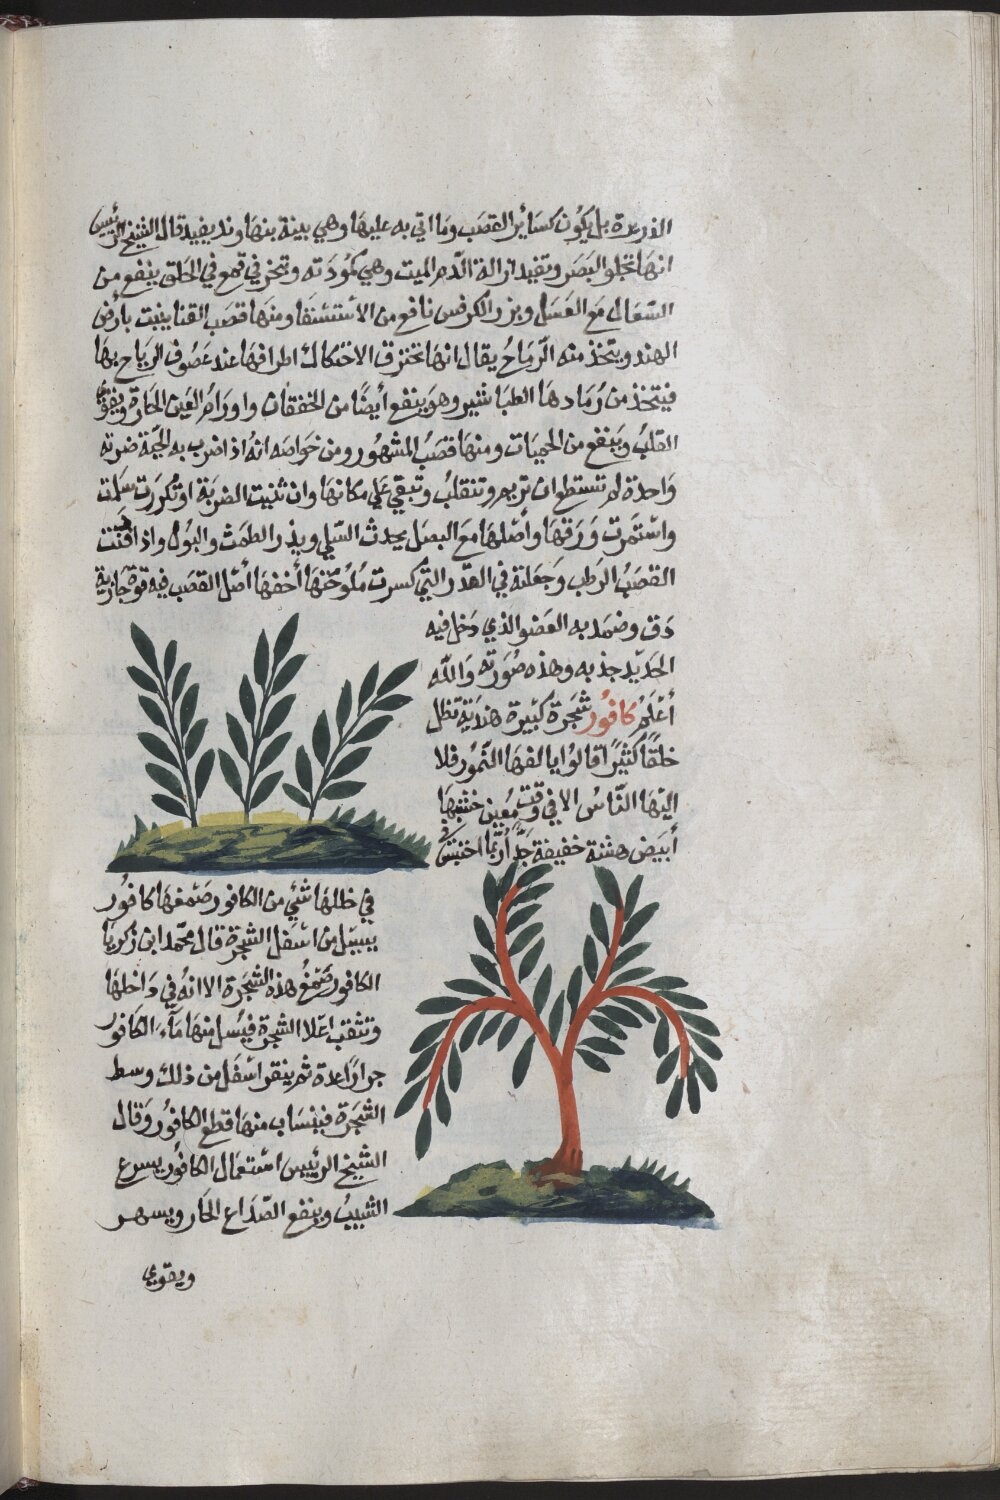 الذريرة بل يكون كسائر القصب وما اتي به عليها وهي بينة بنهاوند يفيد قال الشيخ الرئيس
انها تجلو البصر وتفيد ازالة الدم الميت وهي كمودته وتبخر في قمع في الحلق ينفع من
السعال مع العسل وبزر الكرفس نافع من الاستسقا ومنها قصب القنا ينبت بارض
الهند ويتخذ منه الرماح يقال انها تحترق الاحتكاك اطرافها عند عصوف الرياح بها
فيتخذ من رمادها الطباشير وهو ينفع أيضا من الخفقان واورام العين الحارة ويقوي
القلب وينفع من الحميات ومنها قصب المشهور ومن خواصه انه اذا ضرب به الحية ضربة
واحدة لم تستطع ان تريم وتنقلب وتبقي علي مكانها وان ثنيت الضربة او تكررت سلمت
واستمرت وورقها وأصلها مع البصل يحدث السلي ويدر الطمث والبول واذا
القصب الرطب وجعلته في القدر التي كسرت ملوحتها أخفها أصل القصب فيه قوة جاذبة
دق وضمد به العضو الذي دخل فيه
الحديد جذبه وهذه صورته والله
أعلم كافور شجرة كبيرة هندية تظل
خلقا كثيرا قالوا يا لفها النمور فلا
اليها الناس الا في وقت معين خشبها
أبيض هشة خفيفة جدا ربما احتبس في
في خللها شئ من الكافور صمغها كافور
يسيل من اسفل الشجرة قال محمد ابن زكريا
الكافور صمغ هذه الشجرة الا انه في داخلها
وتثقب اعلا الشجرة فيسل منها مآء الكافور
جرارا عدة ثم ينقر اسفل من ذلك وسط
الشجرة فينساب منها قطع الكافور وقال
الشيخ الرئيس استعمال الكافور يسرع
الشيب وينفع الصداع الحار ويسهر
ويقوي